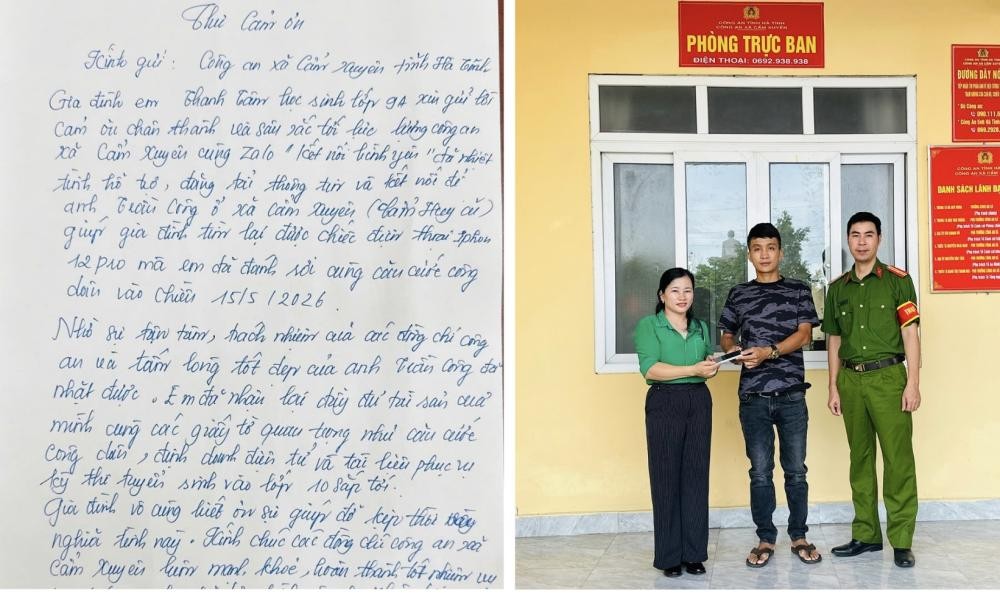 Thư Cảm ơn
Kính gửi: Công an xã Cẩm Xuyên tỉnh Hà Tĩnh
Gia đình em Thanh Tâm học sinh lớp 9A xin gửi tới
cảm ơn chân thành và sâu sắc tới lực lượng công an
xã Cẩm Xuyên cùng Zalo "Kết nối bình yên" đã nhiệt
tình hỗ trợ, đăng tải thông tin và kết nối để
anh Tuấn Công ở xã Cẩm Xuyên (Cẩm Huy cũ)
giúp gia đình tìm lại được chiếc điện thoại Iphon
12 pro mà em đã đánh rơi cùng căn cước công
dân vào chiều 15/5/2026
Nhờ sự tận tâm, trách nhiệm của các đồng chí công
an và tấm lòng tốt đẹp của anh Tuấn Công đã
nhặt được. Em đã nhận lại đầy đủ tài sản của
mình cùng các giấy tờ quan trọng như căn cước
công dân, định danh điện tử và tài liệu phục vụ
kỳ thi tuyển sinh vào lớp 10 sắp tới.
Gia đình vô cùng biết ơn sự giúp đỡ kịp thời đầy
nghĩa tình này. Kính chúc các đồng chí công an xã
Cẩm Xuyên luôn mạnh khoẻ, hoàn thành tốt nhiệm vụ
CÔNG AN TỈNH HÀ TĨNH
CÔNG AN XÃ CẨM XUYÊN
PHÒNG TRỰC BAN
ĐIỆN THOẠI: 0692.938.938
CÔNG AN TỈNH HÀ TĨNH
CÔNG AN XÃ CẨM XUYÊN
ĐƯỜNG DÂY NÓ
* Bộ Công an:
* Công an tỉnh Hà Tĩnh
CÔNG AN TỈNH HÀ TĨNH
CÔNG AN XÃ CẨM XUYÊN
DANH SÁCH LÃNH ĐẠ